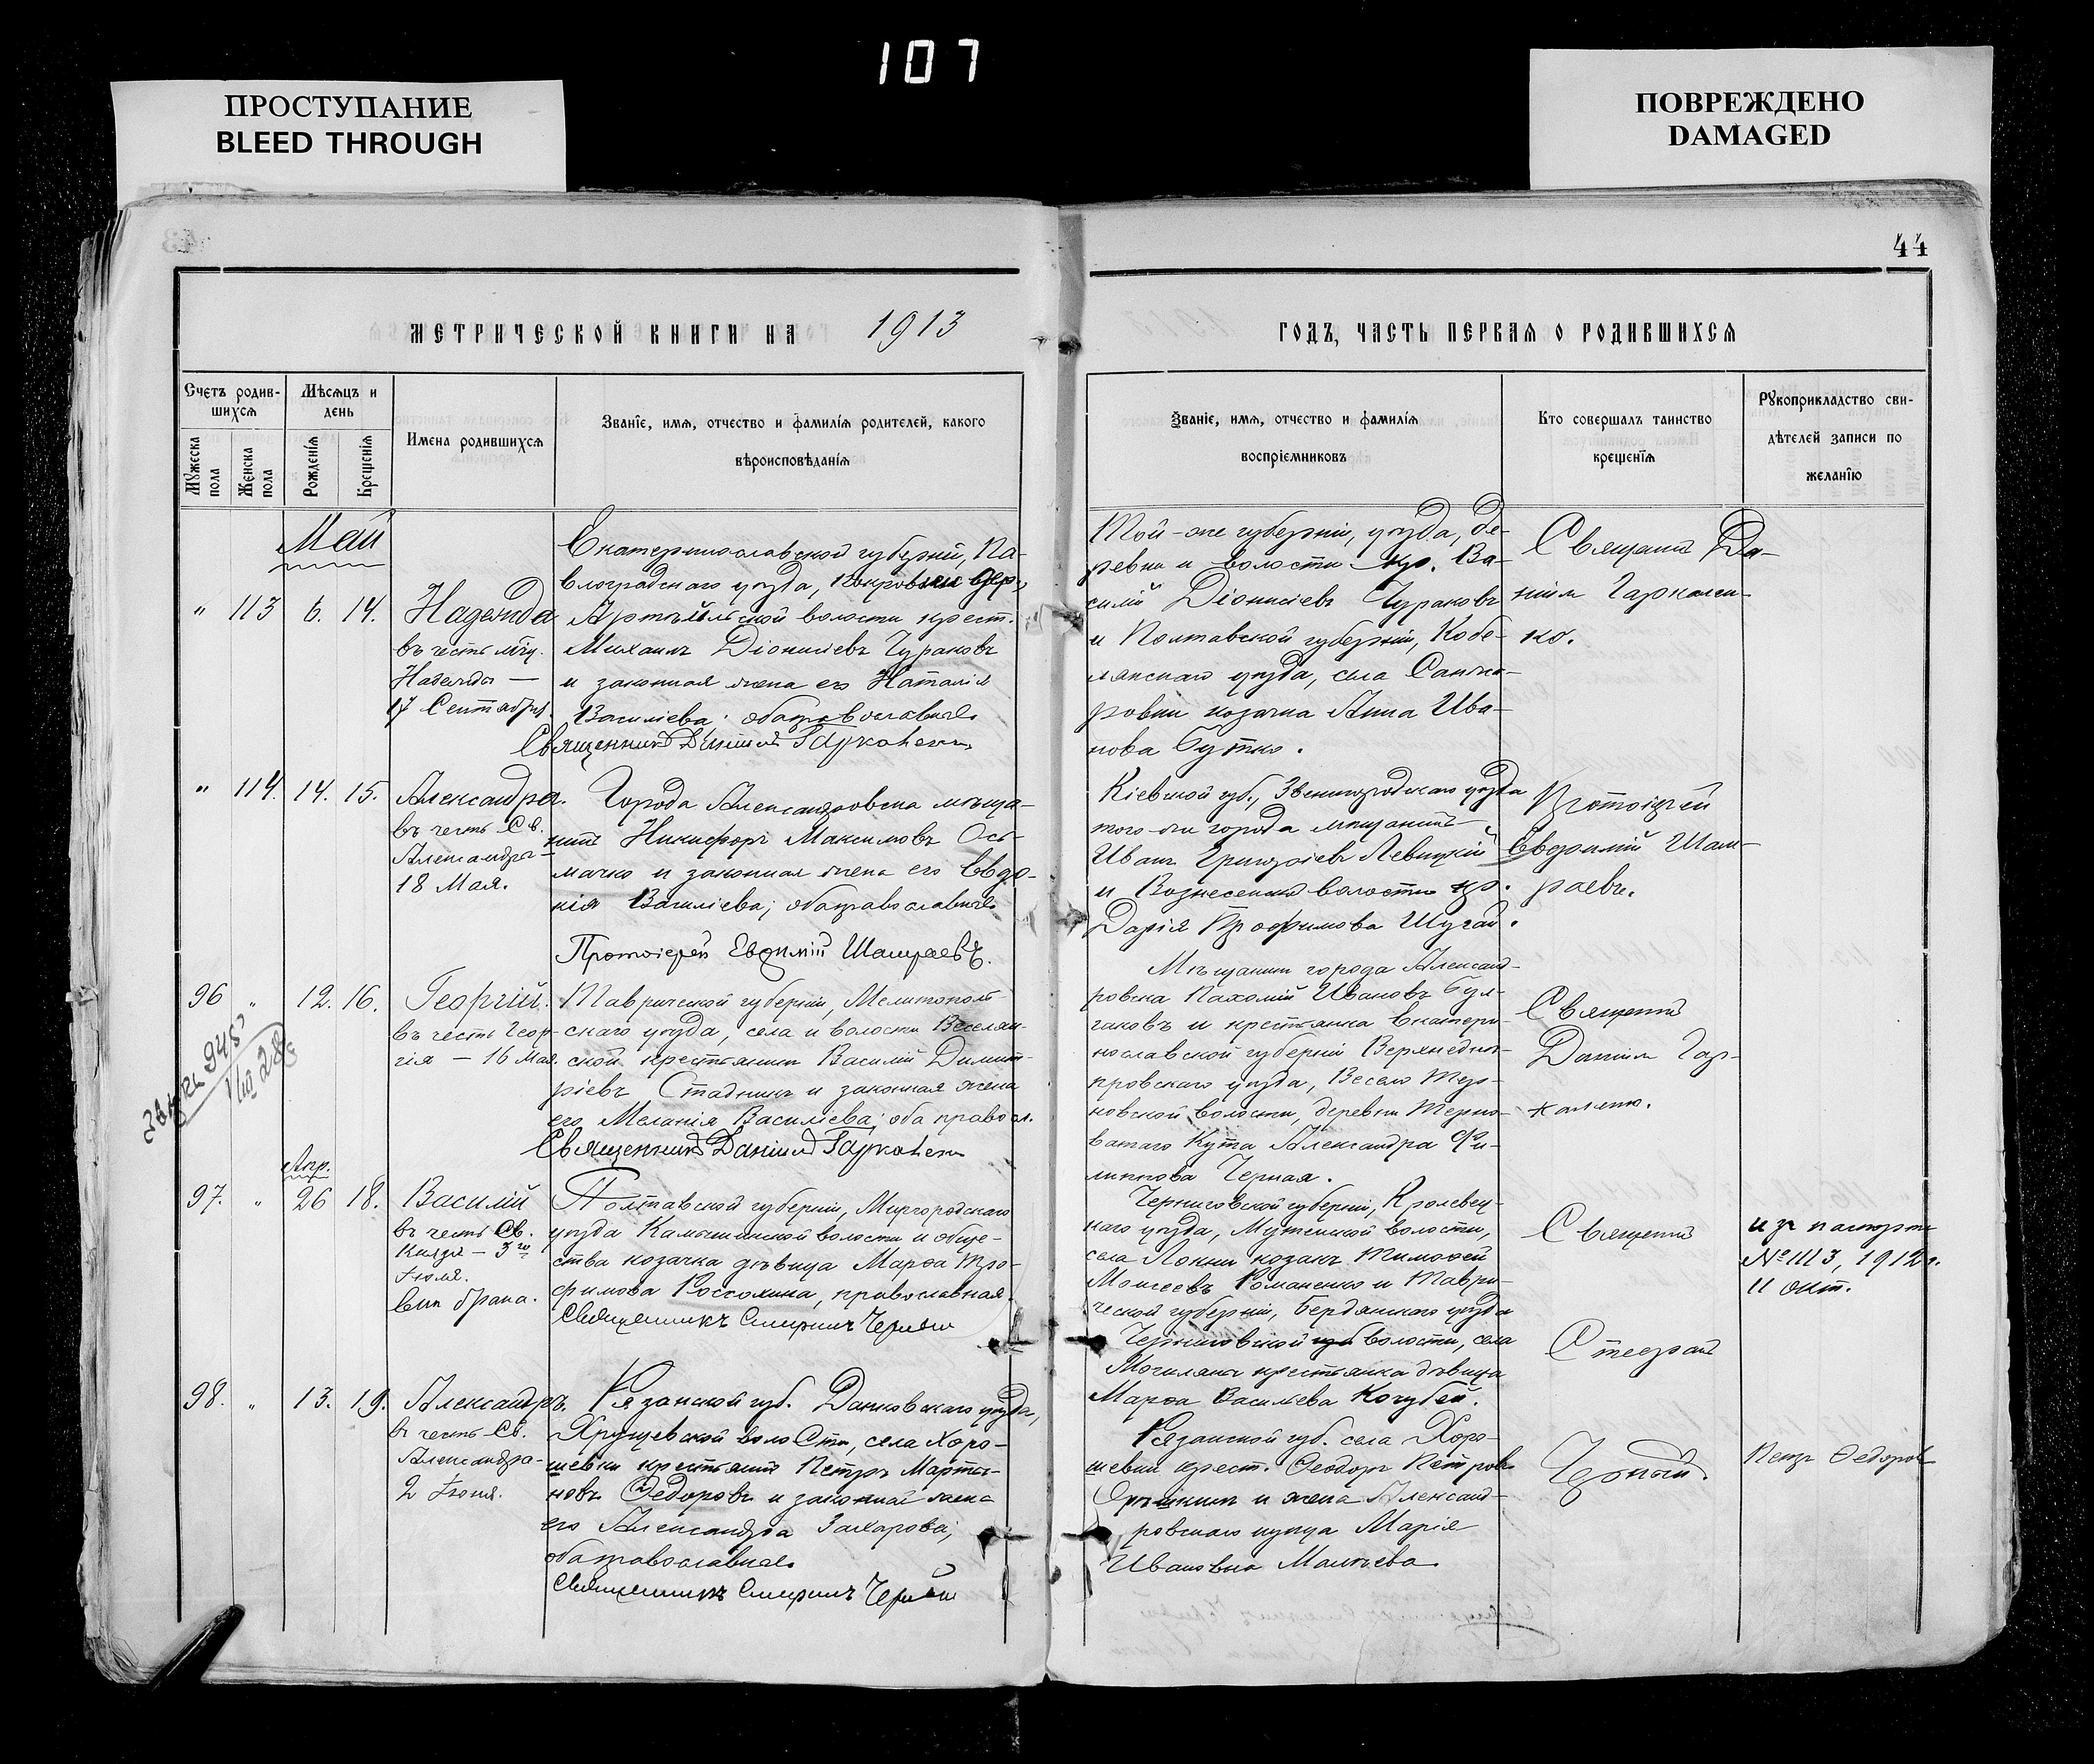 107
ПРОСТУПАНИЕ
BLEED THROUGH
ПОВРЕЖДЕНО
DAMAGED
44
МЕТРИЧЕСКОЙ КНИГИ НА 1913
ГОДЪ, ЧАСТЬ ПЕРВАЯ О РОДИВШИХСЯ
Счетъ родив-
шихся
Мужеска
пола
Женска
пола
Мѣсяцъ и
день
Рожденія
Крещенія
Имена родившихся
Званіе, имя, отчество и фамилія родителей, какого
вѣроисповѣданія
Званіе, имя, отчество и фамилія
воспріемниковъ
Кто совершалъ таинство
крещенія
Рукоприкладство сви-
дѣтелей записи по
желанію
Май
" 113 6. 14.
Надежда
въ честь мцц.
Надежды —
17 Сентября.
Екатеринославской губерніи, Па-
влоградскаго уѣзда, дер.
волости крест.
Михаилъ Діонисіевъ Чураковъ
и законная жена его Наталія
Василіева; оба православные
Священникъ Даніилъ Гаркаленко
Той-же губерніи, уѣзда, де-
ревни и волости кр. Ва-
силій Діонисіевъ Чураковъ
и Полтавской губерніи, Кобе-
лякскаго уѣзда, села
козачка Анна Ива-
нова Бутко.
Священникъ Да-
ніилъ Гаркален-
ко.
" 114. 14. 15.
Александра.
въ честь Св.
Александры —
18 Мая.
Города Александровска мѣща-
нинъ Никифоръ Максимовъ Ось-
мачко и законная жена его Евдо-
кія Василіева; оба православные
Протоіерей Евфимій Шамраевъ.
Кіевской губ., Звенигородскаго уѣзда
того-же города мѣщанинъ
Иванъ Григоріевъ Левицкій
и Вознесенской волости кр.
Дарія Трофимова Шугай.
Протоіерей
Евфимій Шам-
раевъ.
96 " 12. 16.
Георгій.
въ честь Геор-
гія — 16 Мая.
Таврической губерніи, Мелитополь-
скаго уѣзда, села и волости Веселян-
ской крестьянинъ Василій Димит-
ріевъ Стадникъ и законная жена
его Меланія Василіева; оба правосл.
Священникъ Даніилъ Гаркаленко
Мѣщанинъ города Александ-
ровска Пахомій Ивановъ Бул-
гаковъ и крестьянка Екатери-
нославской губерніи Верхнеднѣ-
провскаго уѣзда, Весело Тер-
новской волости, деревни Терно-
ватаго Кута Александра Фи-
липпова Черная.
Священникъ
Даніилъ Гар-
каленко.
Апр.
97. " 26 18.
Василій
въ честь Св.
Князя — 3го
Іюля.
Внѣ брака.
Полтавской губерніи, Миргородскаго
уѣзда Камышинской волости и обще-
ства козачка дѣвица Марѳа Тро-
фимова Россохина, православная.
Священникъ Черный
Черниговской губерніи, Кролевец-
каго уѣзда, Мутинской волости,
села Локни козакъ Тимоѳей
Моисеевъ Романенко и Таври-
ческой губерніи, Бердянскаго уѣзда
Черниговской волости, села
Могиляны крестьянка дѣвица
Марѳа Васильева Кочубей.
Священникъ
Стефанъ
Черный.
из паспорта
№ 1113, 1912 г.
11 окт.
98. " 13. 19.
Александръ.
въ честь Св.
Александра —
2 Іюня.
Рязанской губ. Данковскаго уѣзда,
Хрущевской волости, села Хоро-
шевки крестьянинъ Петръ Марты-
новъ Федоровъ и законная жена
его Александра Захарова;
оба православные
Священникъ Черный
Рязанской губ. села Хоро-
шевки крест. Ѳеодоръ Петровъ
и жена Александ-
ровскаго купца Марія
Ивановна
Петръ Федоровъ